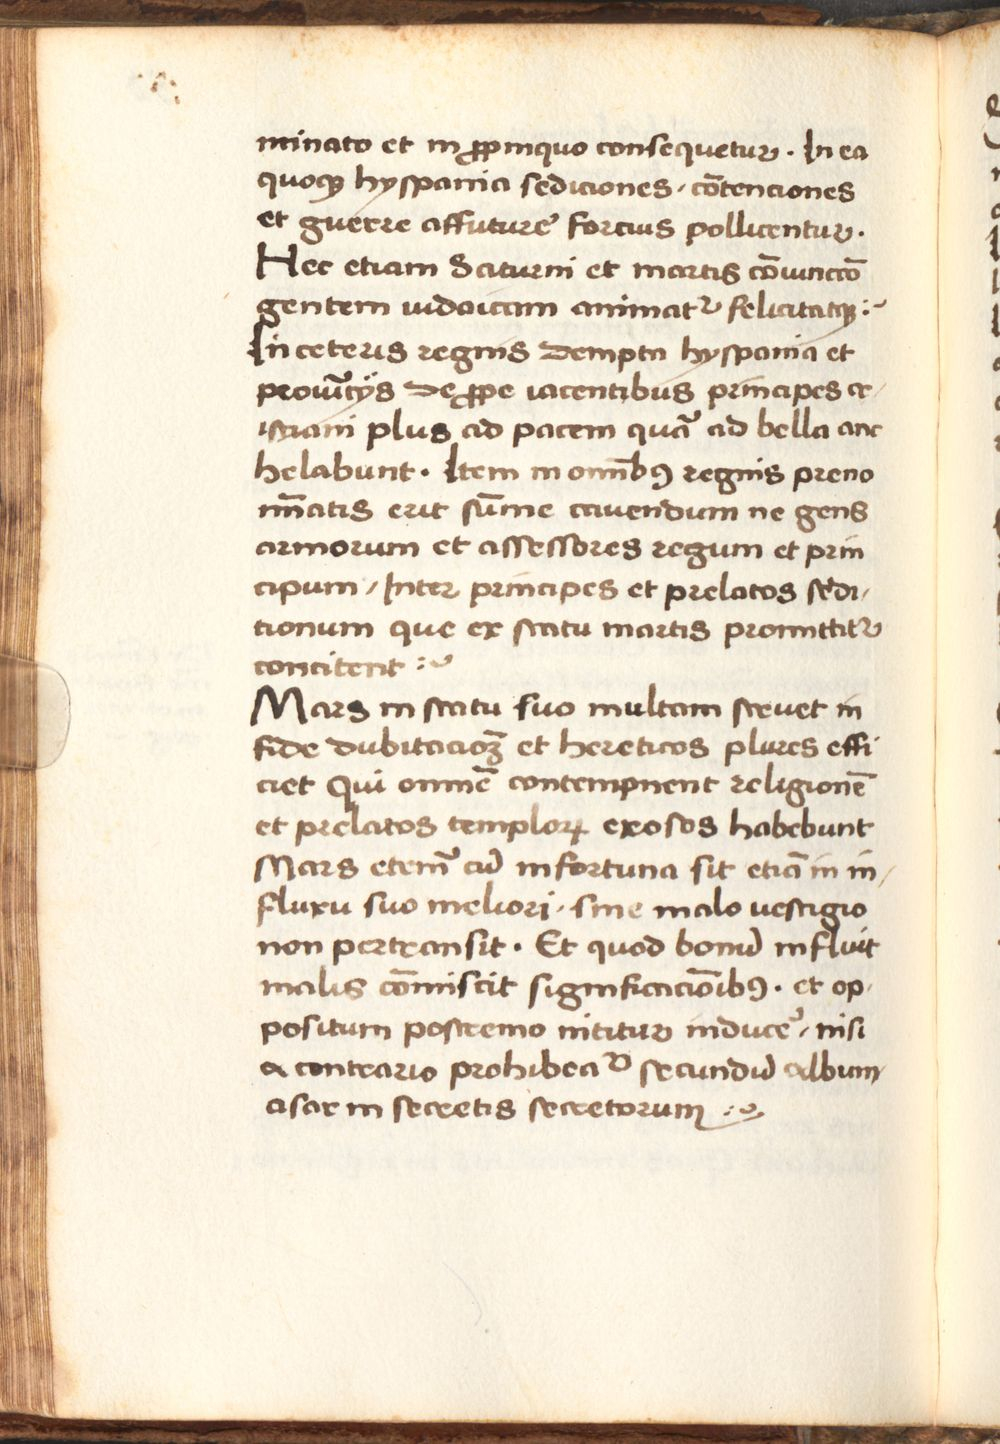 minato et in ꝓpinquo consequetur. In ea
quoqꝫ hyspania sediciones, cōtenciones
et guerre affuture forcius pollicentur.
Hec etiam Saturni et martis cōiunctō
gentem iudaicam animatr felicitatqꝫ :~
In ceteris regnis dempta hyspania et
prouīcijs de ꝓpe iacentibus principes cr
istiani plus ad pacem quā ad bella anc
helabunt. Item in omībꝯ regnis preno
mīatis erit sūme cauendum ne gens
armorum et assessores regum et prin
cipum / Inter principes et prelatos sedi/
tionum que ex statu martis promittitr
concitent :~
Mars in statu suo multam struet in
fide dubitacioꝫ et hereticos plures effi
ciet Qui omnē contempnent religionē
et prelatos temploꝝ exosos habebunt
Mars etenī cū infortuna sit etiā in in/
fluxu suo meliori, sine malo uestigio
non pertransit. Et quod bonū influit
malis cōmiscit significacōibꝯ. et op
positum postremo nititur induce᾽, nisi
a contrario prohibeatr secundū album
asar in secretis secretorum :~